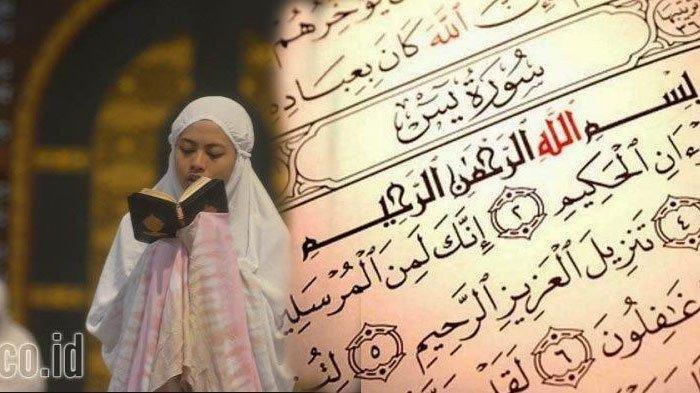 وَخِّرُهُمْ
اللَّهَ كَانَ بِعِبَادِهِ
سُورَةُ يسٓ
بِسْمِ اللَّهِ الرَّحْمَٰنِ الرَّحِيمِ
ءَانِ الْحَكِيمِ ٢ إِنَّكَ لَمِنَ الْمُرْسَلِينَ
٤ تَنزِيلَ الْعَزِيزِ الرَّحِيمِ ٥
غَٰفِلُونَ ٦ لَقَدْ
co.id